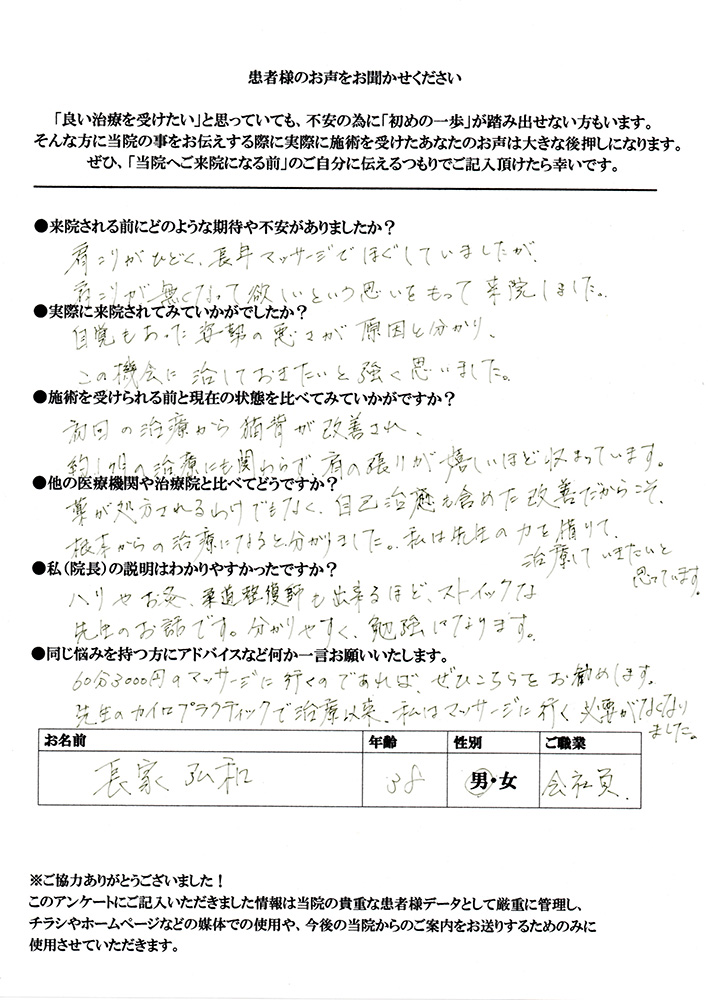 患者様のお声をお聞かせください
「良い治療を受けたい」と思っていても、不安の為に「初めの一歩」が踏み出せない方もいます。
そんな方に当院の事をお伝えする際に実際に施術を受けたあなたのお声は大きな後押しになります。
ぜひ、「当院へご来院になる前」のご自分に伝えるつもりでご記入頂けたら幸いです。
●来院される前にどのような期待や不安がありましたか？
肩こりがひどく、長年マッサージでほぐしていましたが、
肩こりが無くなって欲しいという思いをもって来院しました。
●実際に来院されてみていかがでしたか？
自覚もあった姿勢の悪さが原因と分かり、
この機会に治しておきたいと強く思いました。
●施術を受けられる前と現在の状態を比べてみていかがですか？
初回の治療から猫背が改善され、
約1ヶ月の治療にも関わらず、肩の張りが嬉しいほど収まっています。
●他の医療機関や治療院と比べてどうですか？
薬が処方されるわけでもなく、自己治癒も含めた改善だからこそ、
根本からの治療になると分かりました。私は先生の力を借りて、
治療していきたいと
思っています。
●私（院長）の説明はわかりやすかったですか？
ハリやお灸、柔道整復師も出来るほど、ストイックな
先生のお話です。分かりやすく、勉強になります。
●同じ悩みを持つ方にアドバイスなど何か一言お願いいたします。
60分3000円のマッサージに行くのであれば、ぜひこちらをお勧めします。
先生のカイロプラクティックで治療以来、私はマッサージに行く必要がなくなり
ました。
お名前 年齢 性別 ご職業
長家 弘和 38 男・女 会社員.
※ご協力ありがとうございました！
このアンケートにご記入いただきました情報は当院の貴重な患者様データとして厳重に管理し、
チラシやホームページなどの媒体での使用や、今後の当院からのご案内をお送りするためのみに
使用させていただきます。